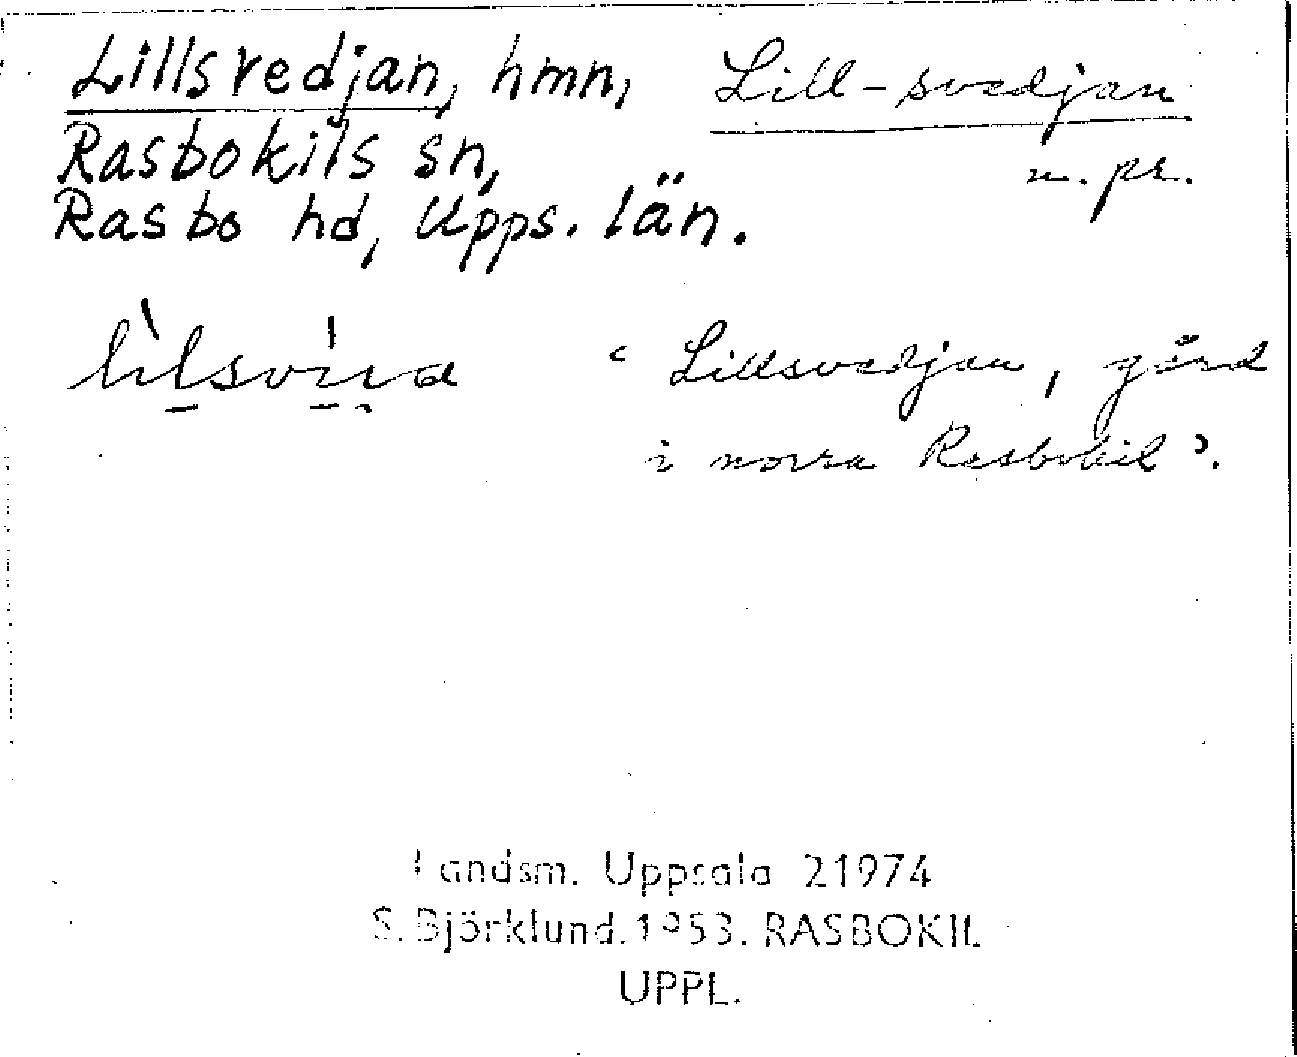 Lillsvedjan, hmn, Lill-svedjan
Rasbokils sn, n. pr.
Rasbo hd, Upps. län.
‘Lillsvedjan, gård
i norra Rasbokil’.
Landsm. Uppsala 21974
S. Björklund. 1953. RASBOKIL
UPPL.